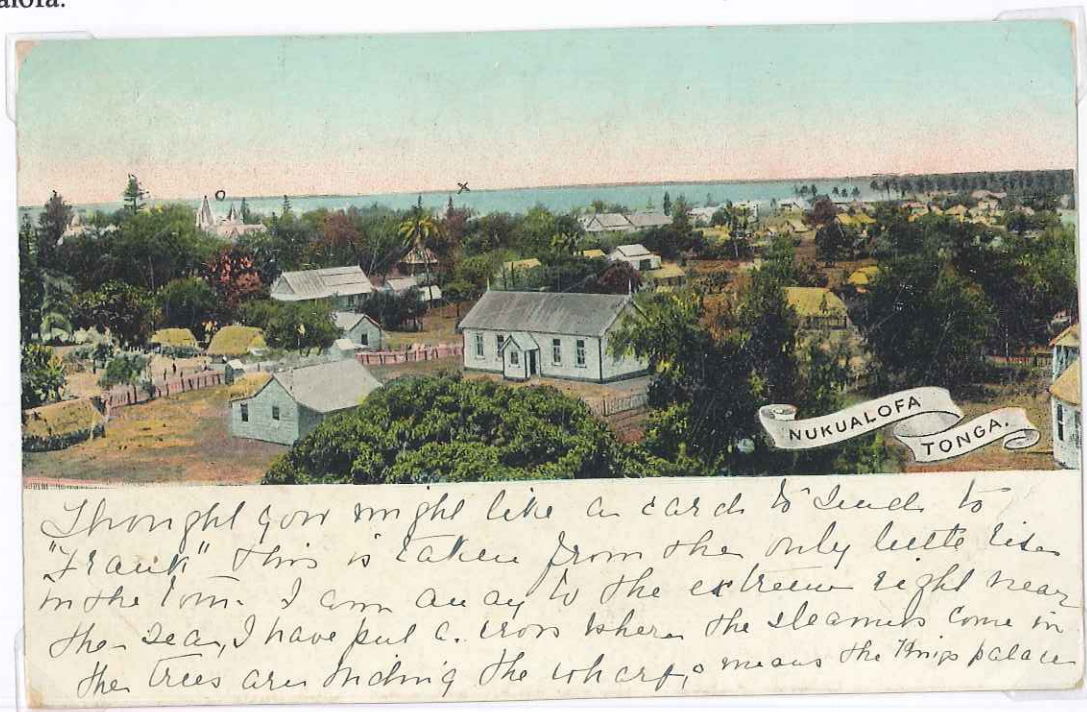 alofa.
o
x
NUKUALOFA
TONGA.
Thought you might like a card to send to
"Frank" this is taken from the only little rise
in the town. I am away to the extreme right near
the sea, I have put a cross where the steamers come in
the trees are hiding the wharf, o means the Kings palace